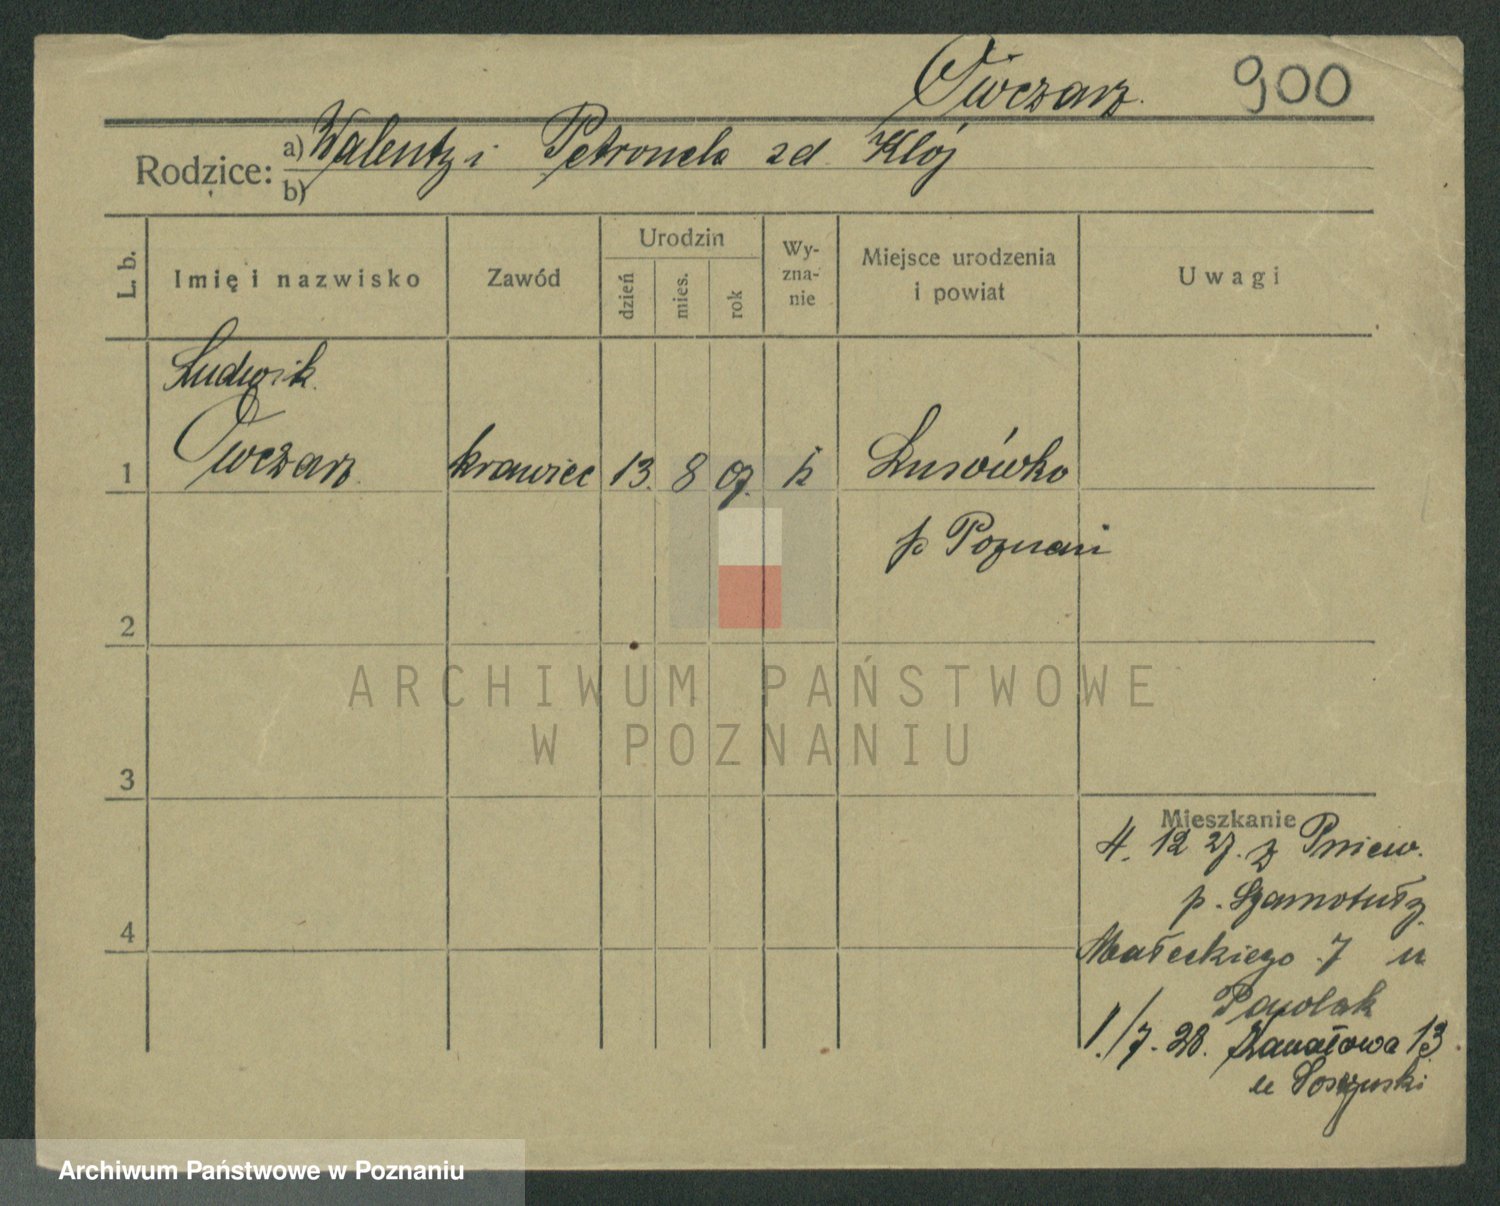 Owczarz. 900
Rodzice: a) Walenty i Petronela zd. Klój
b)
L. b. Imię i nazwisko Zawód Urodzin dzień mies. rok Wy-zna-nie Miejsce urodzenia i powiat Uwagi
Ludwik
1 Owczarz krawiec 13. 8 07. k Lusówko
p Poznań
2
ARCHIWUM PAŃSTWOWE
W POZNANIU
3
Mieszkanie
4. 12 27. z Pniew.
p. Szamotuły
4
Małeckiego 7 u
Pawlak
1./7. 28. Kanałowa 13.
u
Archiwum Państwowe w Poznaniu